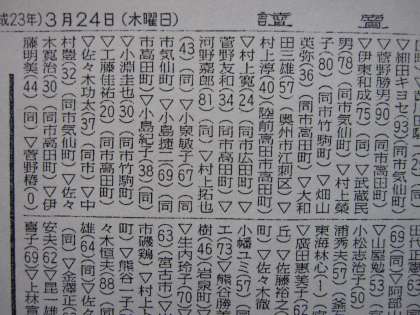 成23年)3月24日(木曜日)
▽細田キヨセ(93)
▽菅野勝男(90)(同市高田町)
▽伊東和成(75)(同)▽武蔵民
男(78)(同市気仙町)▽村上榮
子(80)(同市竹駒町)▽畑山
英弥(36)(同市高田町)▽大和
田三雄(57)(奥州市江刺区)▽
村上淳(40)(陸前高田市高田町)
▽村上寛(24)(同市広田町)▽
菅野友和(34)(同市高田町)▽
河野嘉郎(81)(同)▽村上拓也
(43)(同)▽小泉敏子(67)(同
市気仙町)▽小島捷二(69)(同
市高田町)▽小島紀子(38)(同)
▽小淵圭也(30)(同市竹駒町)
▽工藤佳祐(20)(同市高田町)
▽佐々木功太(37)(同市)▽中
村豊(32)(同市気仙町)▽佐々
木寛治(30)(同市高田町)▽伊
藤明美(44)(同)▽菅野椿(0)
(69)(同)▽阿部
小松志治子(50)
▽山屋勉(53)
浦秀夫(57)(釜
東海林心(1)
▽廣田惠美子(6
丘)▽佐藤裕之
町)▽佐々木徹
小幡ユミ(57)
エ(73)▽熊谷勝美
樹(46)(岩泉町)
▽生内玲子(70)
63)(宮古市)▽
市磯鶏)▽村上
町)▽熊谷一子
々木恒夫(88)
雄(64)(同)▽佐
(同)▽金澤正
安夫(62)▽昆一雄
喜子(69)▽上林富